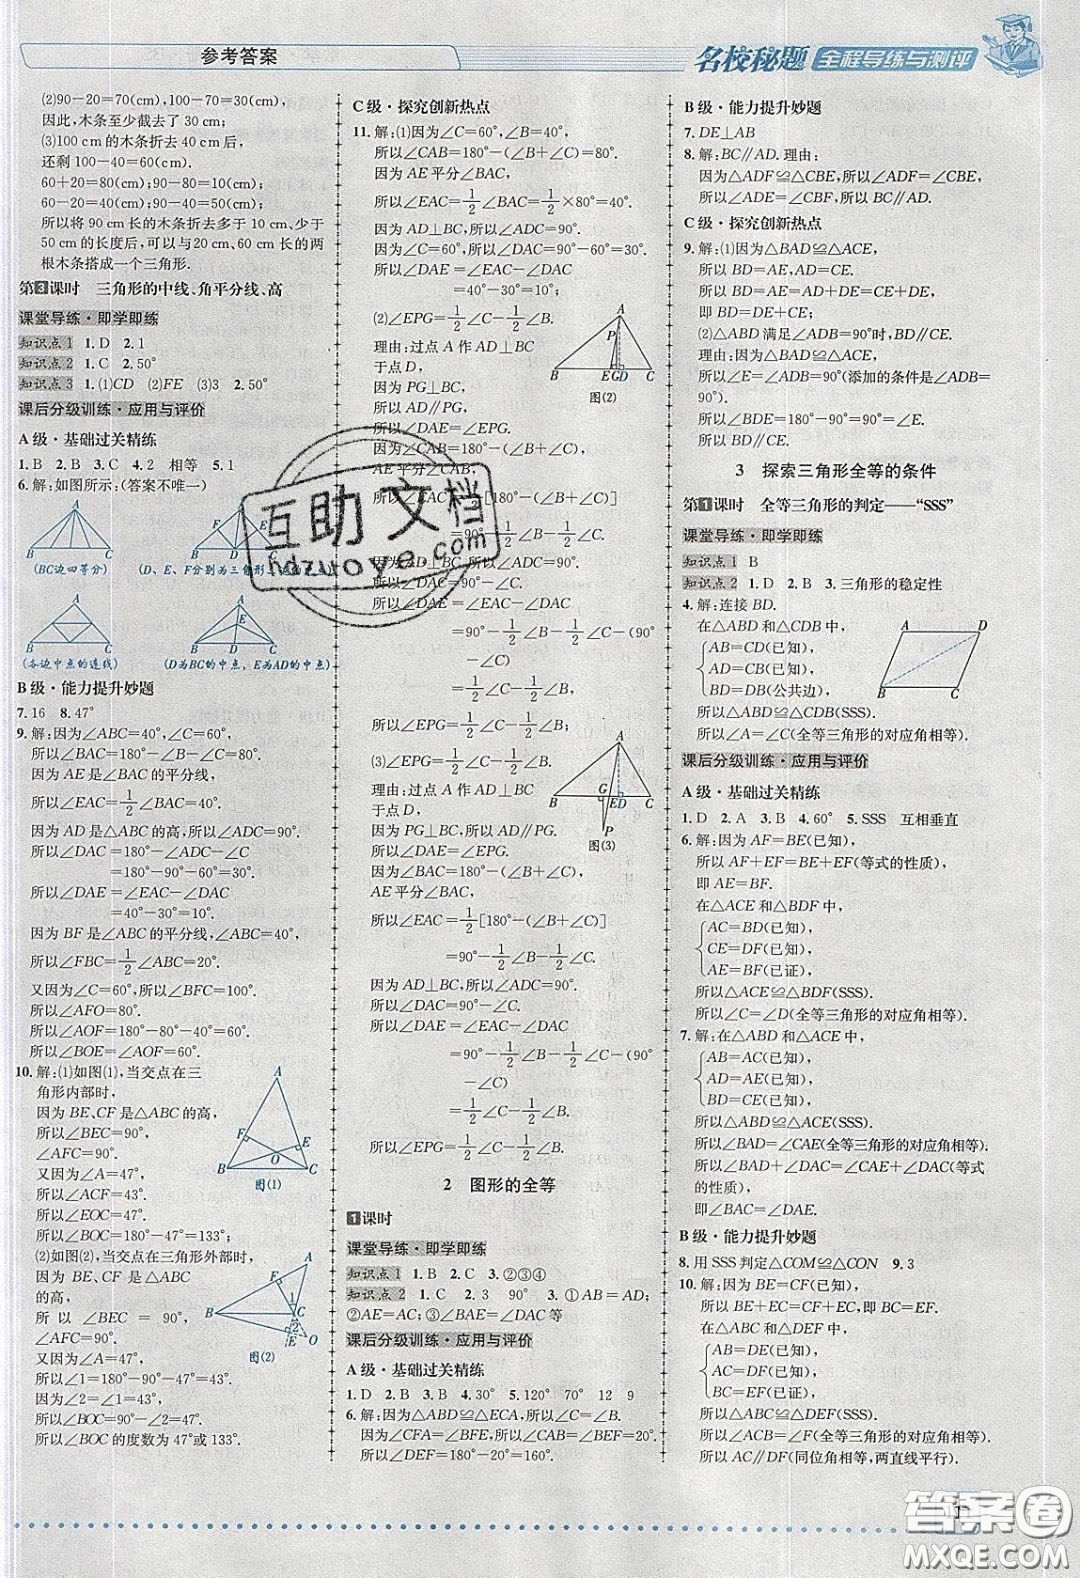 参考答案
名校秘题 全程导练与测评
(2)90－20＝70(cm),100－70＝30(cm),
因此,木条至少截去了 30 cm;
(3)100 cm 的木条折去 40 cm 后,
还剩 100－40＝60(cm);
60＋20＝80(cm);90－80＝10(cm);
60－20＝40(cm);90－40＝50(cm);
所以将 90 cm 长的木条折去多于 10 cm、少于
50 cm 的长度后,可以与20 cm、60 cm 长的两
根木条搭成一个三角形.
第3课时 三角形的中线、角平分线、高
课堂导练·即学即练
知识点1 1.D 2.1
知识点2 1.C 2.50°
知识点3 1.(1)CD (2)FE (3)3 2.50°
课后分级训练·应用与评价
A 级·基础过关精练
1.B 2.B 3.C 4.2 相等 5.1
6.解:如图所示:(答案不唯一)
A
B D C
(BC边四等分)
(D、E、F分别为三角形
(各边中点的连线)
A
E
B D C
(D为BC的中点,E为AD的中点)
B 级·能力提升妙题
7.16 8.47°
9.解:因为∠ABC＝40°,∠C＝60°,
所以∠BAC＝180°－∠B－∠C＝80°.
因为 AE是∠BAC的平分线,
所以∠EAC＝1/2∠BAC＝40°.
因为 AD是△ABC的高,所以∠ADC＝90°.
所以∠DAC＝180°－∠ADC－∠C
＝180°－90°－60°＝30°.
所以∠DAE＝∠EAC－∠DAC
＝40°－30°＝10°.
因为 BF是∠ABC的平分线,∠ABC＝40°,
所以∠FBC＝1/2∠ABC＝20°.
又因为∠C＝60°,所以∠BFC＝100°.
所以∠AFO＝80°.
所以∠AOF＝180°－80°－40°＝60°.
所以∠BOE＝∠AOF＝60°.
10.解:(1)如图(1),当交点在三
角形内部时,
因为 BE、CF是△ABC的高,
所以∠BEC＝90°,
∠AFC＝90°.
又因为∠A＝47°,
所以∠ACF＝43°.
所以∠EOC＝47°.
所以∠BOC＝180°－47°＝133°;
A
F E
O
B C
图(1)
(2)如图(2),当交点在三角形外部时,
因为 BE、CF 是△ABC
的高,
所以∠BEC＝90°,
∠AFC＝90°.
又因为∠A＝47°,
所以∠1＝180°－90°－47°＝43°.
所以∠2＝43°.
所以∠BOC＝90°－∠2＝47°.
所以∠BOC的度数为 47°或 133°.
A
F
1
B C
2
E O
图(2)
C 级·探究创新热点
11.解:(1)因为∠C＝60°,∠B＝40°,
所以∠CAB＝180°－(∠B＋∠C)＝80°.
因为 AE平分∠BAC,
所以∠EAC＝1/2∠BAC＝1/2×80°＝40°.
因为 AD⊥BC,所以∠ADC＝90°.
因为∠C＝60°,所以∠DAC＝90°－60°＝30°.
所以∠DAE＝∠EAC－∠DAC
＝40°－30°＝10°;
(2)∠EPG＝1/2∠C－1/2∠B.
理由:过点 A 作 AD⊥BC
于点 D,
因为 PG⊥BC,
所以 AD∥PG,
所以∠DAE＝∠EPG.
A
P
B EGD C
图(2)
因为∠CAB＝180°－(∠B＋∠C),
AE平分∠CAB,
所以∠DAE
＝90°－1/2∠B－1/2∠C－(90°
－∠C)
＝1/2∠C－1/2∠B.
所以∠EPG＝1/2∠C－1/2∠B;
(3)∠EPG＝1/2∠C－1/2∠B.
理由:过点 A 作 AD⊥BC
于点 D,
因为 PG⊥BC,AD⊥BC,
所以∠DAE＝∠EPG.
A
G
B ED C
P
图(3)
因为∠CAB＝180°－(∠B＋∠C),
AE平分∠BAC,
所以∠EAC＝1/2[180°－(∠B＋∠C)]
＝90°－1/2∠B－1/2∠C.
因为 AD⊥BC,所以∠ADC＝90°.
所以∠DAC＝90°－∠C.
所以∠DAE＝90°－1/2∠B－1/2∠C－(90°
－∠C)
＝1/2∠C－1/2∠B.
所以∠EPG＝1/2∠C－1/2∠B.
2 图形的全等
1课时
课堂导练·即学即练
知识点1 1.B 2.C 3.②③④
知识点2 1.C 2.3 90° 3.①AB＝AD;
②AE＝AC;③∠BAE＝∠DAC等
课后分级训练·应用与评价
A 级·基础过关精练
1.D 2.B 3.B 4.C 5.120° 70° 12 9
6.解:因为△ABF≌△ECA,所以∠C＝∠B.
因为∠CFA＝∠BFE,所以∠CAF＝∠BEF＝20°.
所以∠DEF＝180°－20°＝160°.
B 级·能力提升妙题
7.DE⊥AB
8.解:BC∥AD.理由:
因为△ADF≌△CBE,所以∠ADF＝∠CBE,
所以∠ADB＝∠CBD,所以BC∥AD.
C 级·探究创新热点
9.解:(1)因为△BAD≌△ACE,
所以 BD＝AE,AD＝CE.
所以 BD＝AE＝AD＋DE＝CE＋DE,
即 BD＝DE＋CE;
(2)△ABD 满足∠ADB＝90°时,BD∥CE.
理由:因为△BAD≌△ACE,
所以∠E＝∠ADB＝90°(添加的条件是∠ADB＝
90°).
所以∠BDE＝180°－90°＝90°＝∠E.
所以 BD∥CE.
3 探索三角形全等的条件
第1课时 全等三角形的判定——“SSS”
课堂导练·即学即练
知识点1 B
知识点2 1.D 2.B 3.三角形的稳定性
4.解:连接 BD.
在△ABD 和△CDB 中,
AB＝CD(已知),
AD＝CB(已知),
BD＝DB(公共边),
所以△ABD≌△CDB(SSS).
所以∠A＝∠C(全等三角形的对应角相等).
A D
B C
课后分级训练·应用与评价
A 级·基础过关精练
1.D 2.A 3.B 4.60° 5.SSS 互相垂直
6.解:因为 AF＝BE(已知),
所以 AF＋EF＝BE＋EF(等式的性质),
即 AE＝BF.
在△ACE 和△BDF 中,
AC＝BD(已知),
CE＝DF(已知),
AE＝BF(已证),
所以△ACE≌△BDF(SSS).
所以∠C＝∠D(全等三角形的对应角相等).
7.解:在△ABD 和△ACE 中,
AB＝AC(已知),
AD＝AE(已知),
BD＝CE(已知),
所以△ABD≌△ACE(SSS).
所以∠BAD＝∠CAE(全等三角形的对应角相等).
所以∠BAD＋∠DAC＝∠CAE＋∠DAC(等式
的性质),
即∠BAC＝∠DAE.
B 级·能力提升妙题
8.用 SSS 判定△COM≌△CON 9.3
10.解:因为 BE＝CF(已知),
所以 BE＋EC＝CF＋EC,即 BC＝EF.
在△ABC 和△DEF 中,
AB＝DE(已知),
AC＝DF(已知),
BC＝EF(已证),
所以△ABC≌△DEF(SSS).
所以∠ACB＝∠F(全等三角形的对应角相等).
所以 AC∥DF(同位角相等,两直线平行).
互助文档
hdzuoye.com
答案圈
MXQE.COM